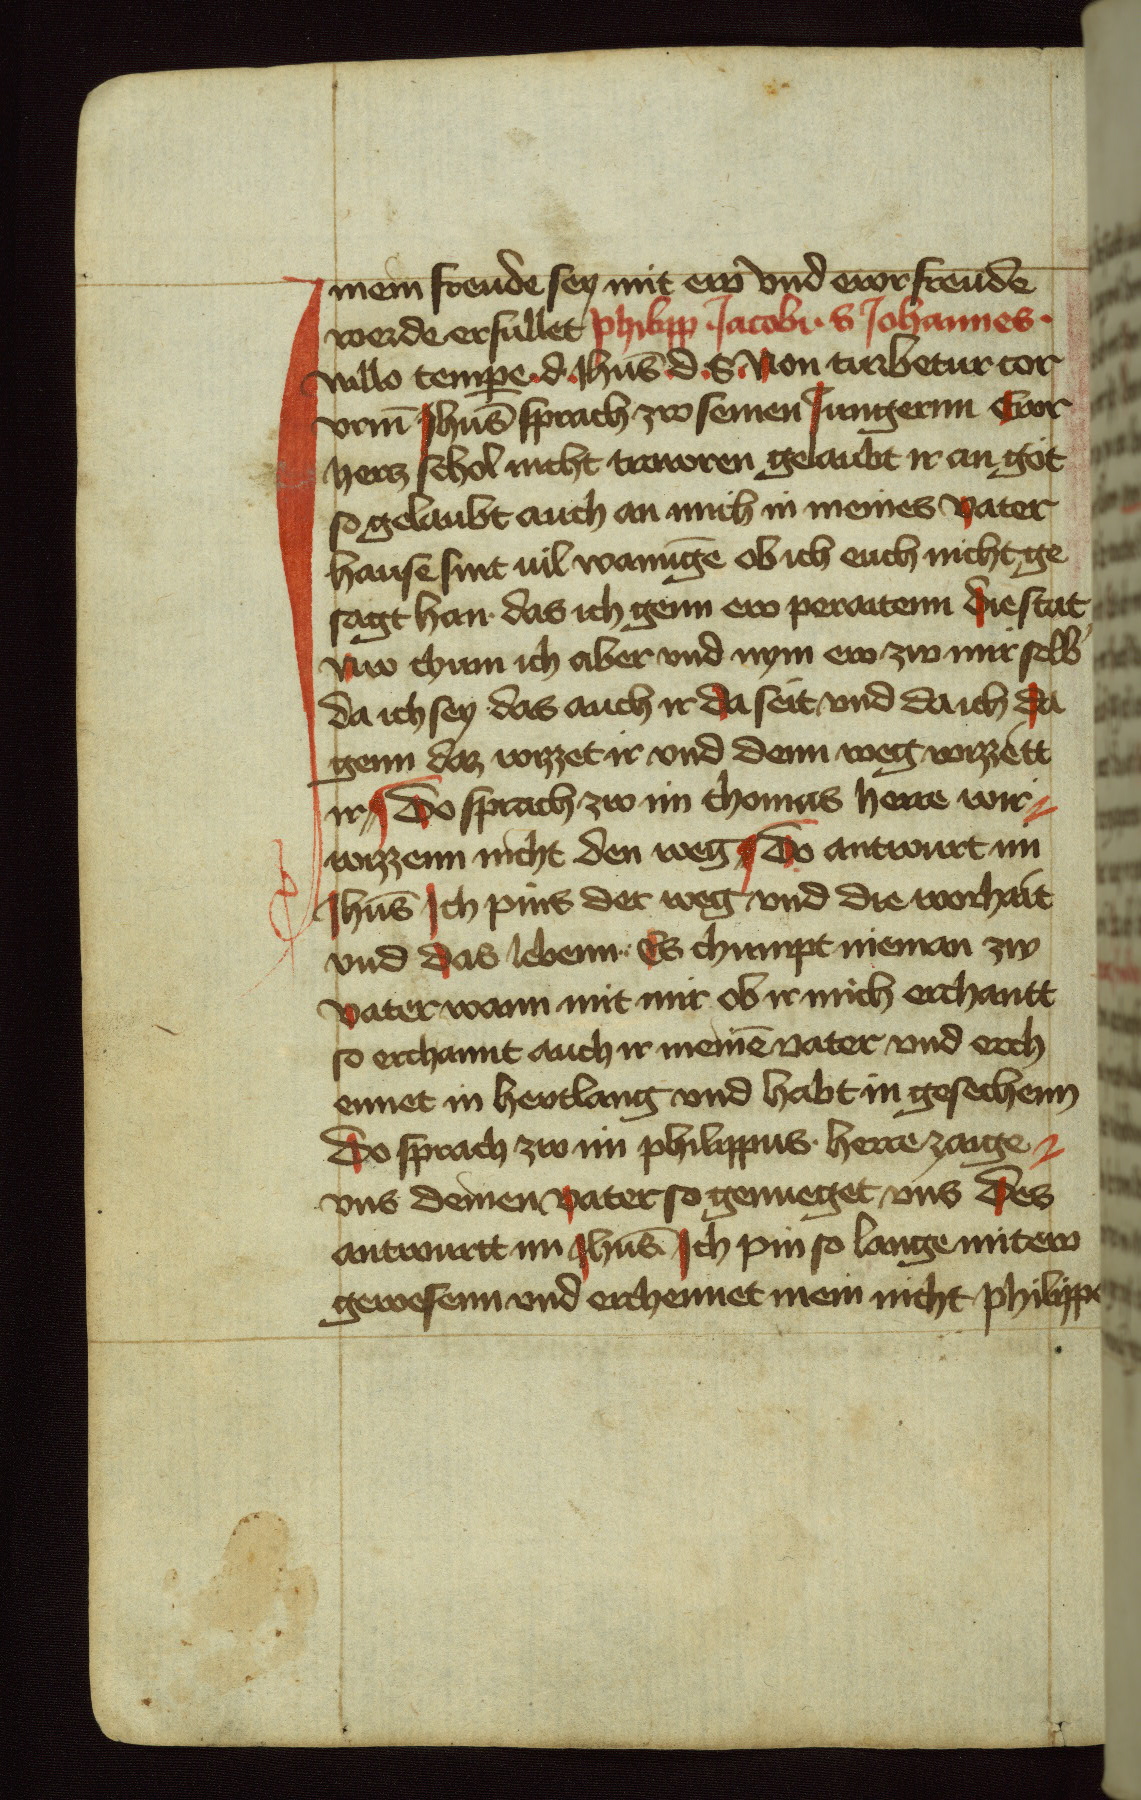 mein freude sey mit ew vnd ewr freude
werde erfullet philipp · Jacobi · S Johannes ·
nillo tempe · d · Jhūs d · S · Non turbetur cor
vrm̄ Jhūs sprach zw seinen Jungernn Ewr
hertz schol nicht trawren gelaubt ir an got
so gelaubt auch an mich in meines vater
hause sint uil wanūgē ob ich euch nicht ge
sagt han · das ich genn ew peraitenn die stat
nw chum ich aber vnd nym ew zw mir selb
da ich sey das auch ir da seit vnd da ich da
genn daz wizzet ir vnd denn weg wizzett
ir Do sprach zw im thomas herre wir
wizzenn nicht den weg Do antwurt im
Jhūs Ich pins der weg vnd die worhait
vnd das lebenn · Es chumpt nieman zw
vater wann mit mir ob ir mich erchantt
so erchannt auch ir meinē vater vnd erch
ennet in hertlang vnd habt in gesechenn
Do sprach zw im philippus · herre zaige
vns deinen vater so genueget vns des
antwurtt im Jhūs Ich pin so lange mit ew
gewesenn vnd erchennet mein nicht philippe